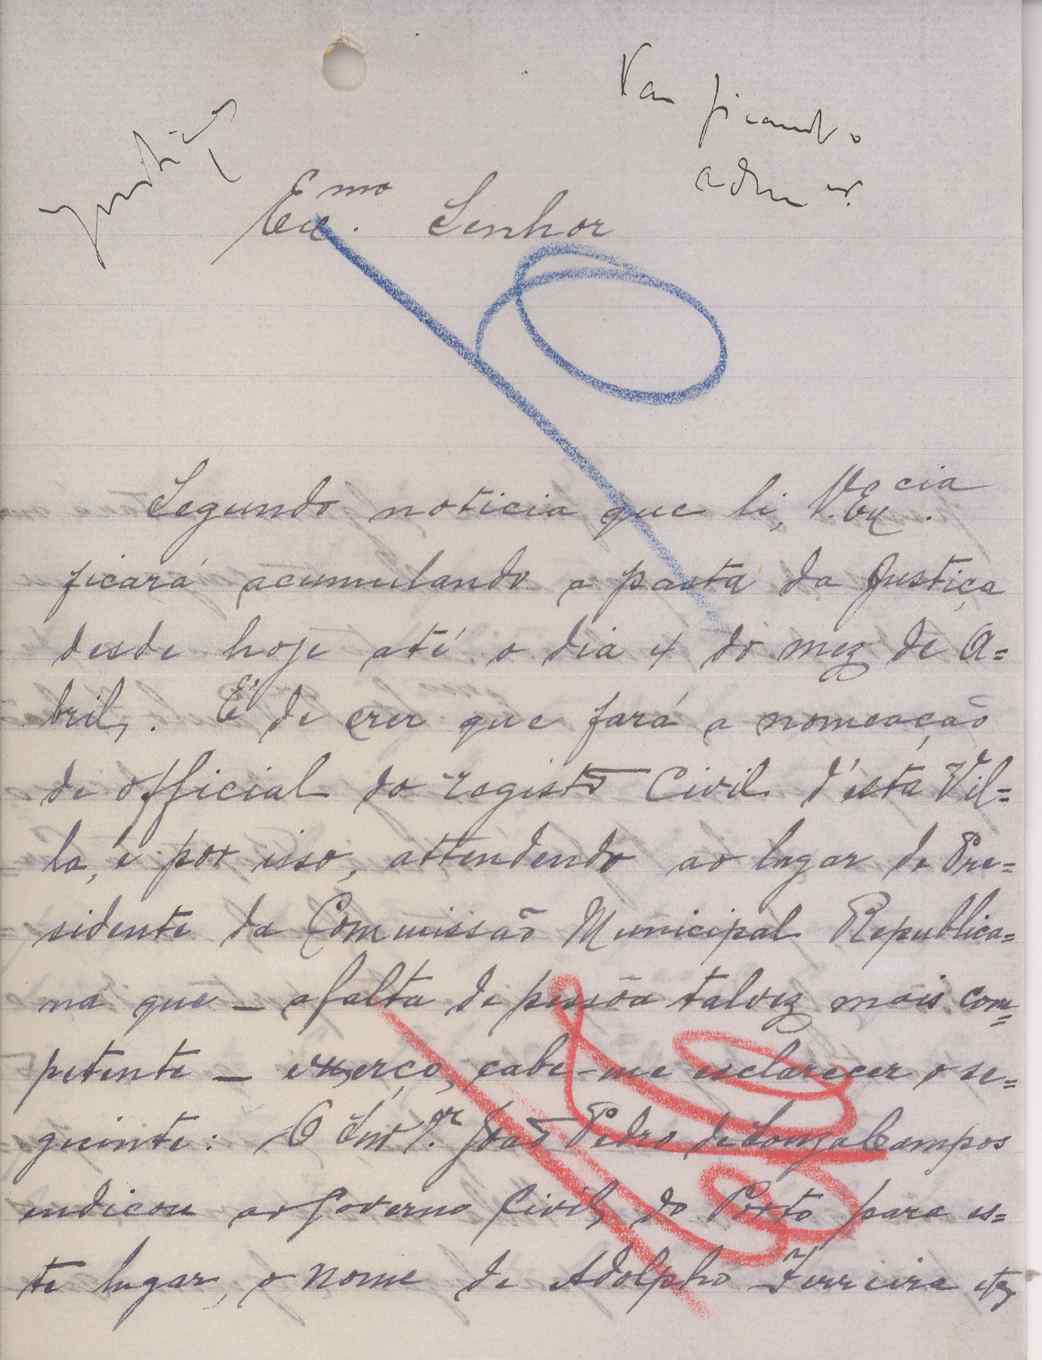 Justiça
Exmo. Senhor
Segundo noticia que li, V. Excia.
ficará acumulando a pasta da Justiça
desde hoje até o dia 4 do mez de A=
bril,. É de crer que fará a nomeação
de official do registo Civil d'esta Vil=
la, e por isso, attendendo ao lugar de Pre=
sidente da Commissão Municipal Republica=
na que _ a falta de pessôa talvez mais com=
petente _ exerço, cabe-me esclarecer o se=
guinte: O Snr. Dr. João Pedro de Souza Campos
indicou ao Governo Civil, do Porto para es=
te lugar, o nome de Adolpho Ferreira